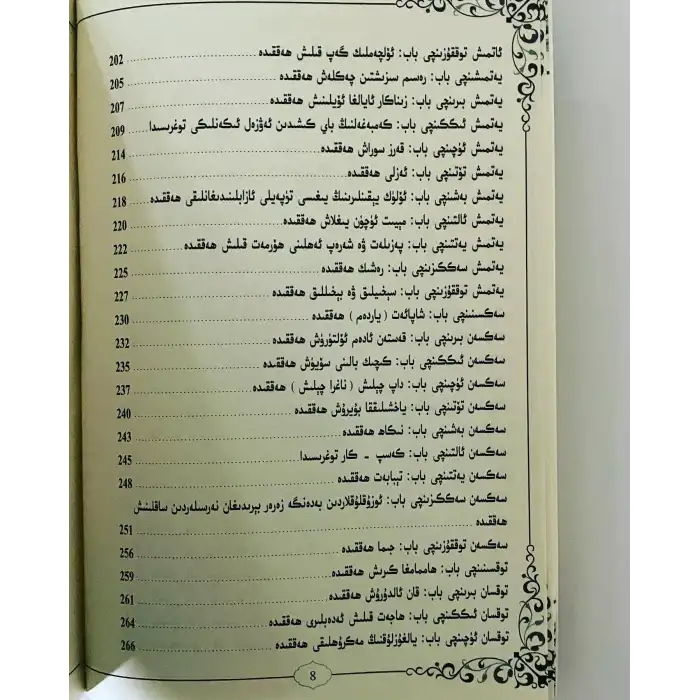 ئاتمىش توققۇزىنچى باب: ئۆلچەملىك گەپ قىلىش ھەققىدە 202
يەتمىشىنچى باب: رەسىم سىزىشتىن چەكلەش ھەققىدە 205
يەتمىش بىرىنچى باب: زىناكار ئايالغا ئۆيلىنىش ھەققىدە 207
يەتمىش ئىككىنچى باب: كەمبەغەلنىڭ باي كىشىدىن ئەۋزەل ئىكەنلىكى توغرىسىدا 209
يەتمىش ئۈچىنچى باب: قەرز سوراش ھەققىدە 214
يەتمىش تۆتىنچى باب: ئەزلى ھەققىدە 216
يەتمىش بەشىنچى باب: ئۆلۈك يېقىنلىرىنىڭ يىغىسى تۈپەيلى ئازابلىنىدىغانلىقى ھەققىدە 218
يەتمىش ئالتىنچى باب: مېيىت ئۈچۈن يىغلاش ھەققىدە 220
يەتمىش يەتتىنچى باب: پەزىلەت ۋە شەرەپ ئەھلىنى ھۆرمەت قىلىش ھەققىدە 222
يەتمىش سەككىزىنچى باب: رەشك ھەققىدە 225
يەتمىش توققۇزىنچى باب: سېخىيلىق ۋە بېخىللىق ھەققىدە 227
سەكسىنىنچى باب: شاپائەت ( ياردەم ) ھەققىدە 230
سەكسەن بىرىنچى باب: قەستەن ئادەم ئۆلتۈرۈش ھەققىدە 232
سەكسەن ئىككىنچى باب: كىچىك بالىنى سۆيۈش ھەققىدە 235
سەكسەن ئۈچىنچى باب: داپ چېلىش ( ناغرا چېلىش ) ھەققىدە 237
سەكسەن تۆتىنچى باب: ياخشىلىققا بۇيرۇش ھەققىدە 240
سەكسەن بەشىنچى باب: نىكاھ ھەققىدە 243
سەكسەن ئالتىنچى باب: كەسپ - كار توغرىسىدا 245
سەكسەن يەتتىنچى باب: تېبابەت ھەققىدە 248
سەكسەن سەككىزىنچى باب: ئوزۇقلۇقلاردىن بەدەنگە زەرەر بېرىدىغان نەرسىلەردىن ساقلىنىش
ھەققىدە 251
سەكسەن توققۇزىنچى باب: جىما ھەققىدە 256
توقسىنىنچى باب: ھاممامغا كىرىش ھەققىدە 259
توقسان بىرىنچى باب: قان ئالدۇرۇش ھەققىدە 261
توقسان ئىككىنچى باب: ھاجەت قىلىش ئەدەبلىرى ھەققىدە 264
توقسان ئۈچىنچى باب: يالغۇزلۇقنىڭ مەكرۇھلىقى ھەققىدە 266
8